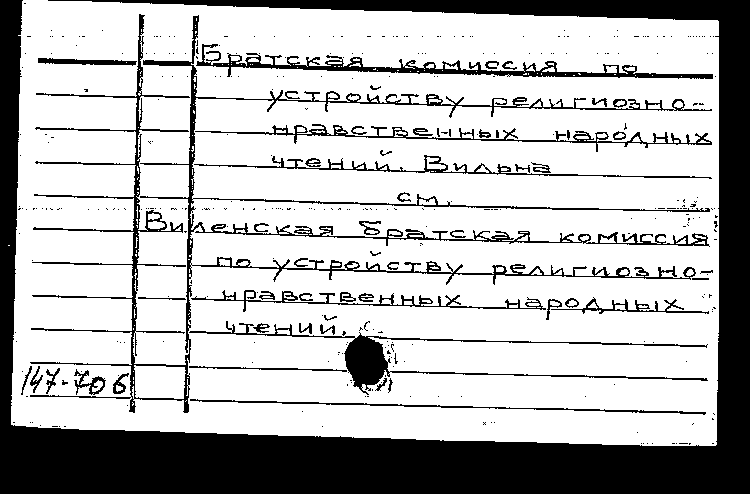 Братская комиссия по
устройству религиозно-
нравственных народных
чтений. Вильна
см.
Виленская братская комиссия
по устройству религиозно-
нравственных народных
чтений.
147-706